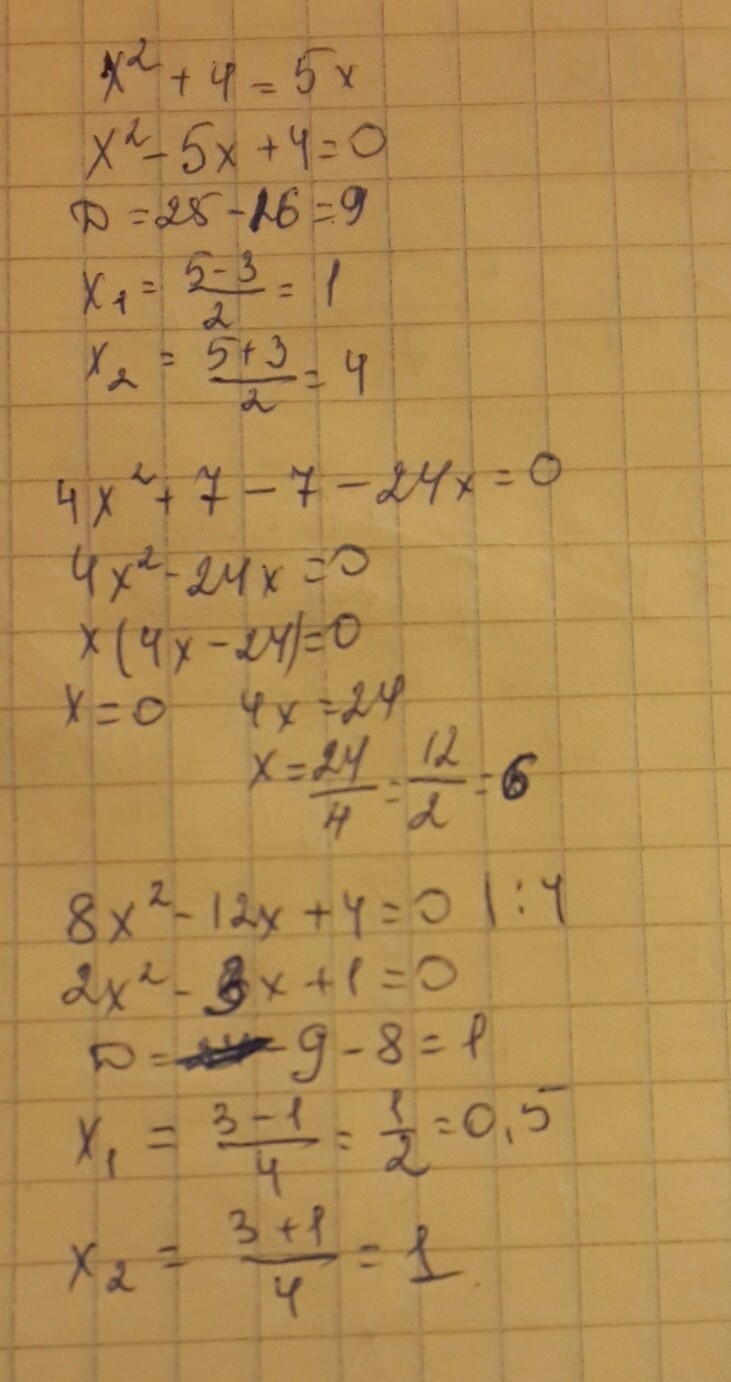 x² + 4 = 5x
x² - 5x + 4 = 0
D = 25 - 16 = 9
x₁ = (5-3)/2 = 1
x₂ = (5+3)/2 = 4
4x² + 7 - 7 - 24x = 0
4x² - 24x = 0
x(4x - 24) = 0
x = 0 4x = 24
x = 24/4 = 12/2 = 6
8x² - 12x + 4 = 0 | : 4
2x² - 3x + 1 = 0
D = 9 - 8 = 1
x₁ = (3-1)/4 = 1/2 = 0,5
x₂ = (3+1)/4 = 1